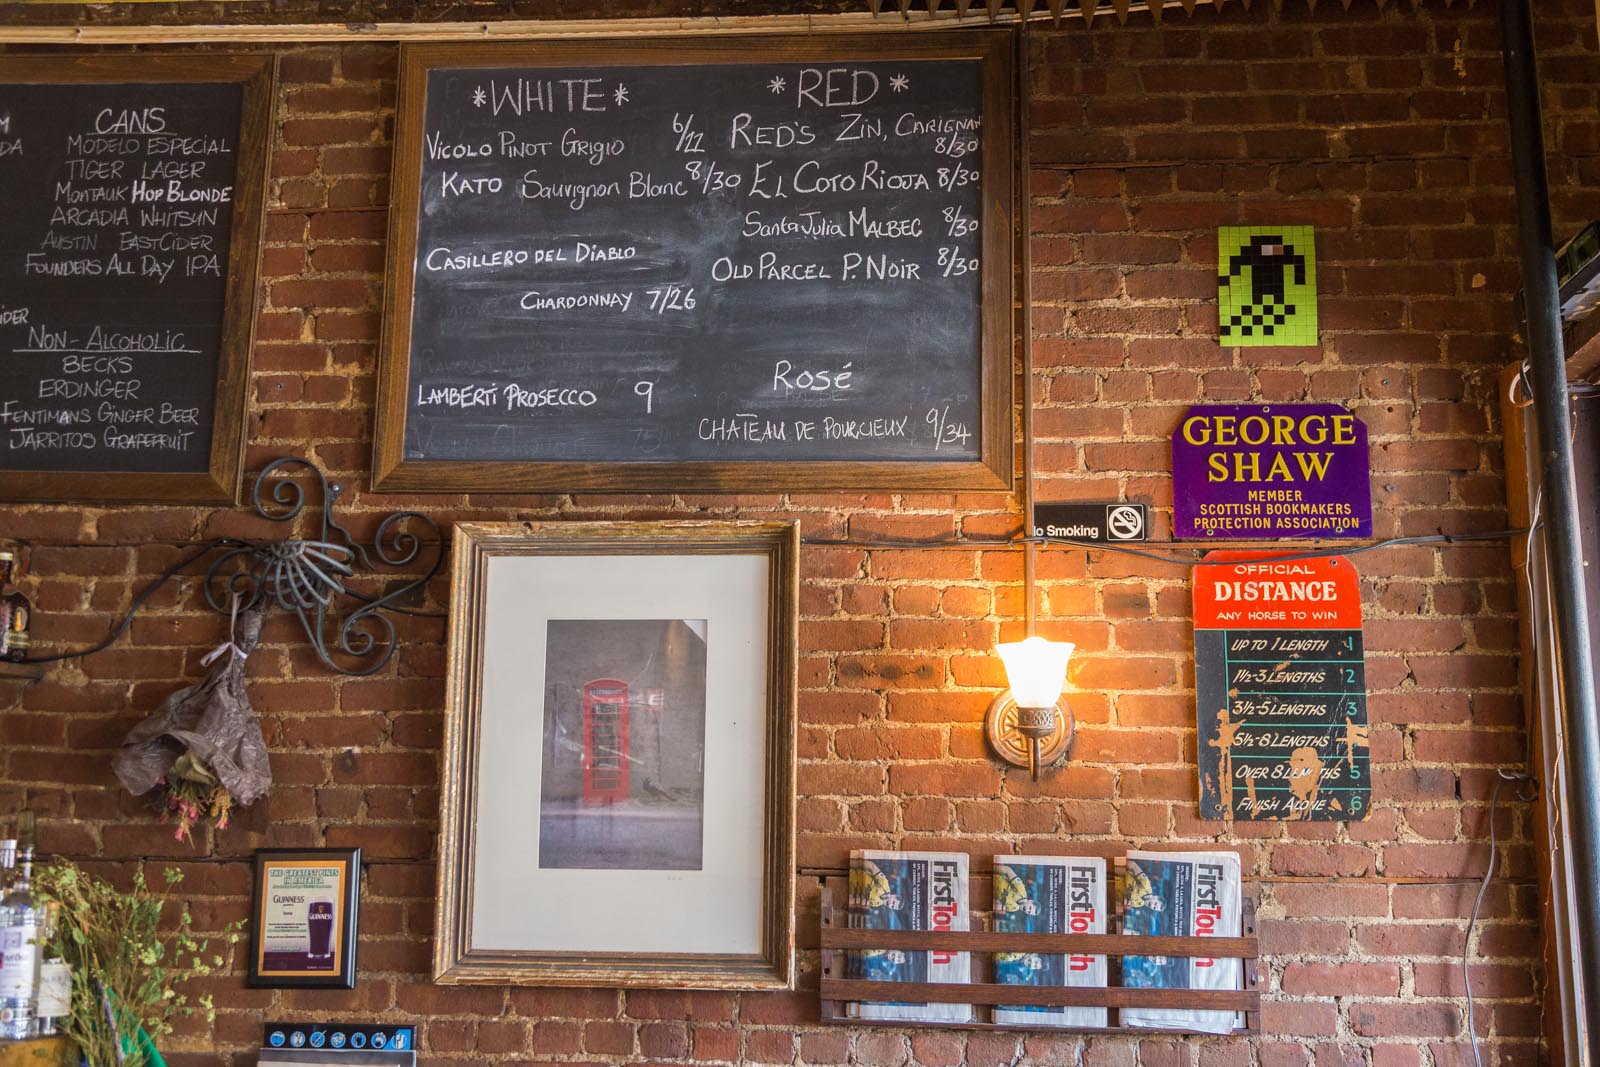 CANS
MODELO ESPECIAL
TIGER LAGER
MONTAUK HOP BLONDE
ARCADIA WHITSUN
AUSTIN EASTCIDER
FOUNDERS ALL DAY IPA
NON-ALCOHOLIC
BECKS
ERDINGER
FENTIMANS GINGER BEER
JARRITOS GRAPEFRUIT
*WHITE*
VICOLO PINOT GRIGIO 6/22
KATO Sauvignon Blanc 8/30
CASILLERO DEL DIABLO
CHARDONNAY 7/26
LAMBERTI PROSECCO 9
*RED*
RED'S ZIN, CARIGNAN
8/30
EL COTO RIOJA 8/30
Santa Julia MALBEC 8/30
OLD PARCEL P. NOIR 8/30
ROSÉ
CHATEAU DE POURCIEUX 9/34
No Smoking
GEORGE
SHAW
MEMBER
SCOTTISH BOOKMAKERS
PROTECTION ASSOCIATION
OFFICIAL
DISTANCE
ANY HORSE TO WIN
UP TO 1 LENGTH 1
1½-3 LENGTHS 2
3½-5 LENGTHS 3
5½-8 LENGTHS
OVER 8 LENGTHS 5
FINISH ALONE 6
THE GREATEST PINTS
IN AMERICA
GUINNESS
GUINNESS
FirstTouch
FirstTouch
FirstTouch